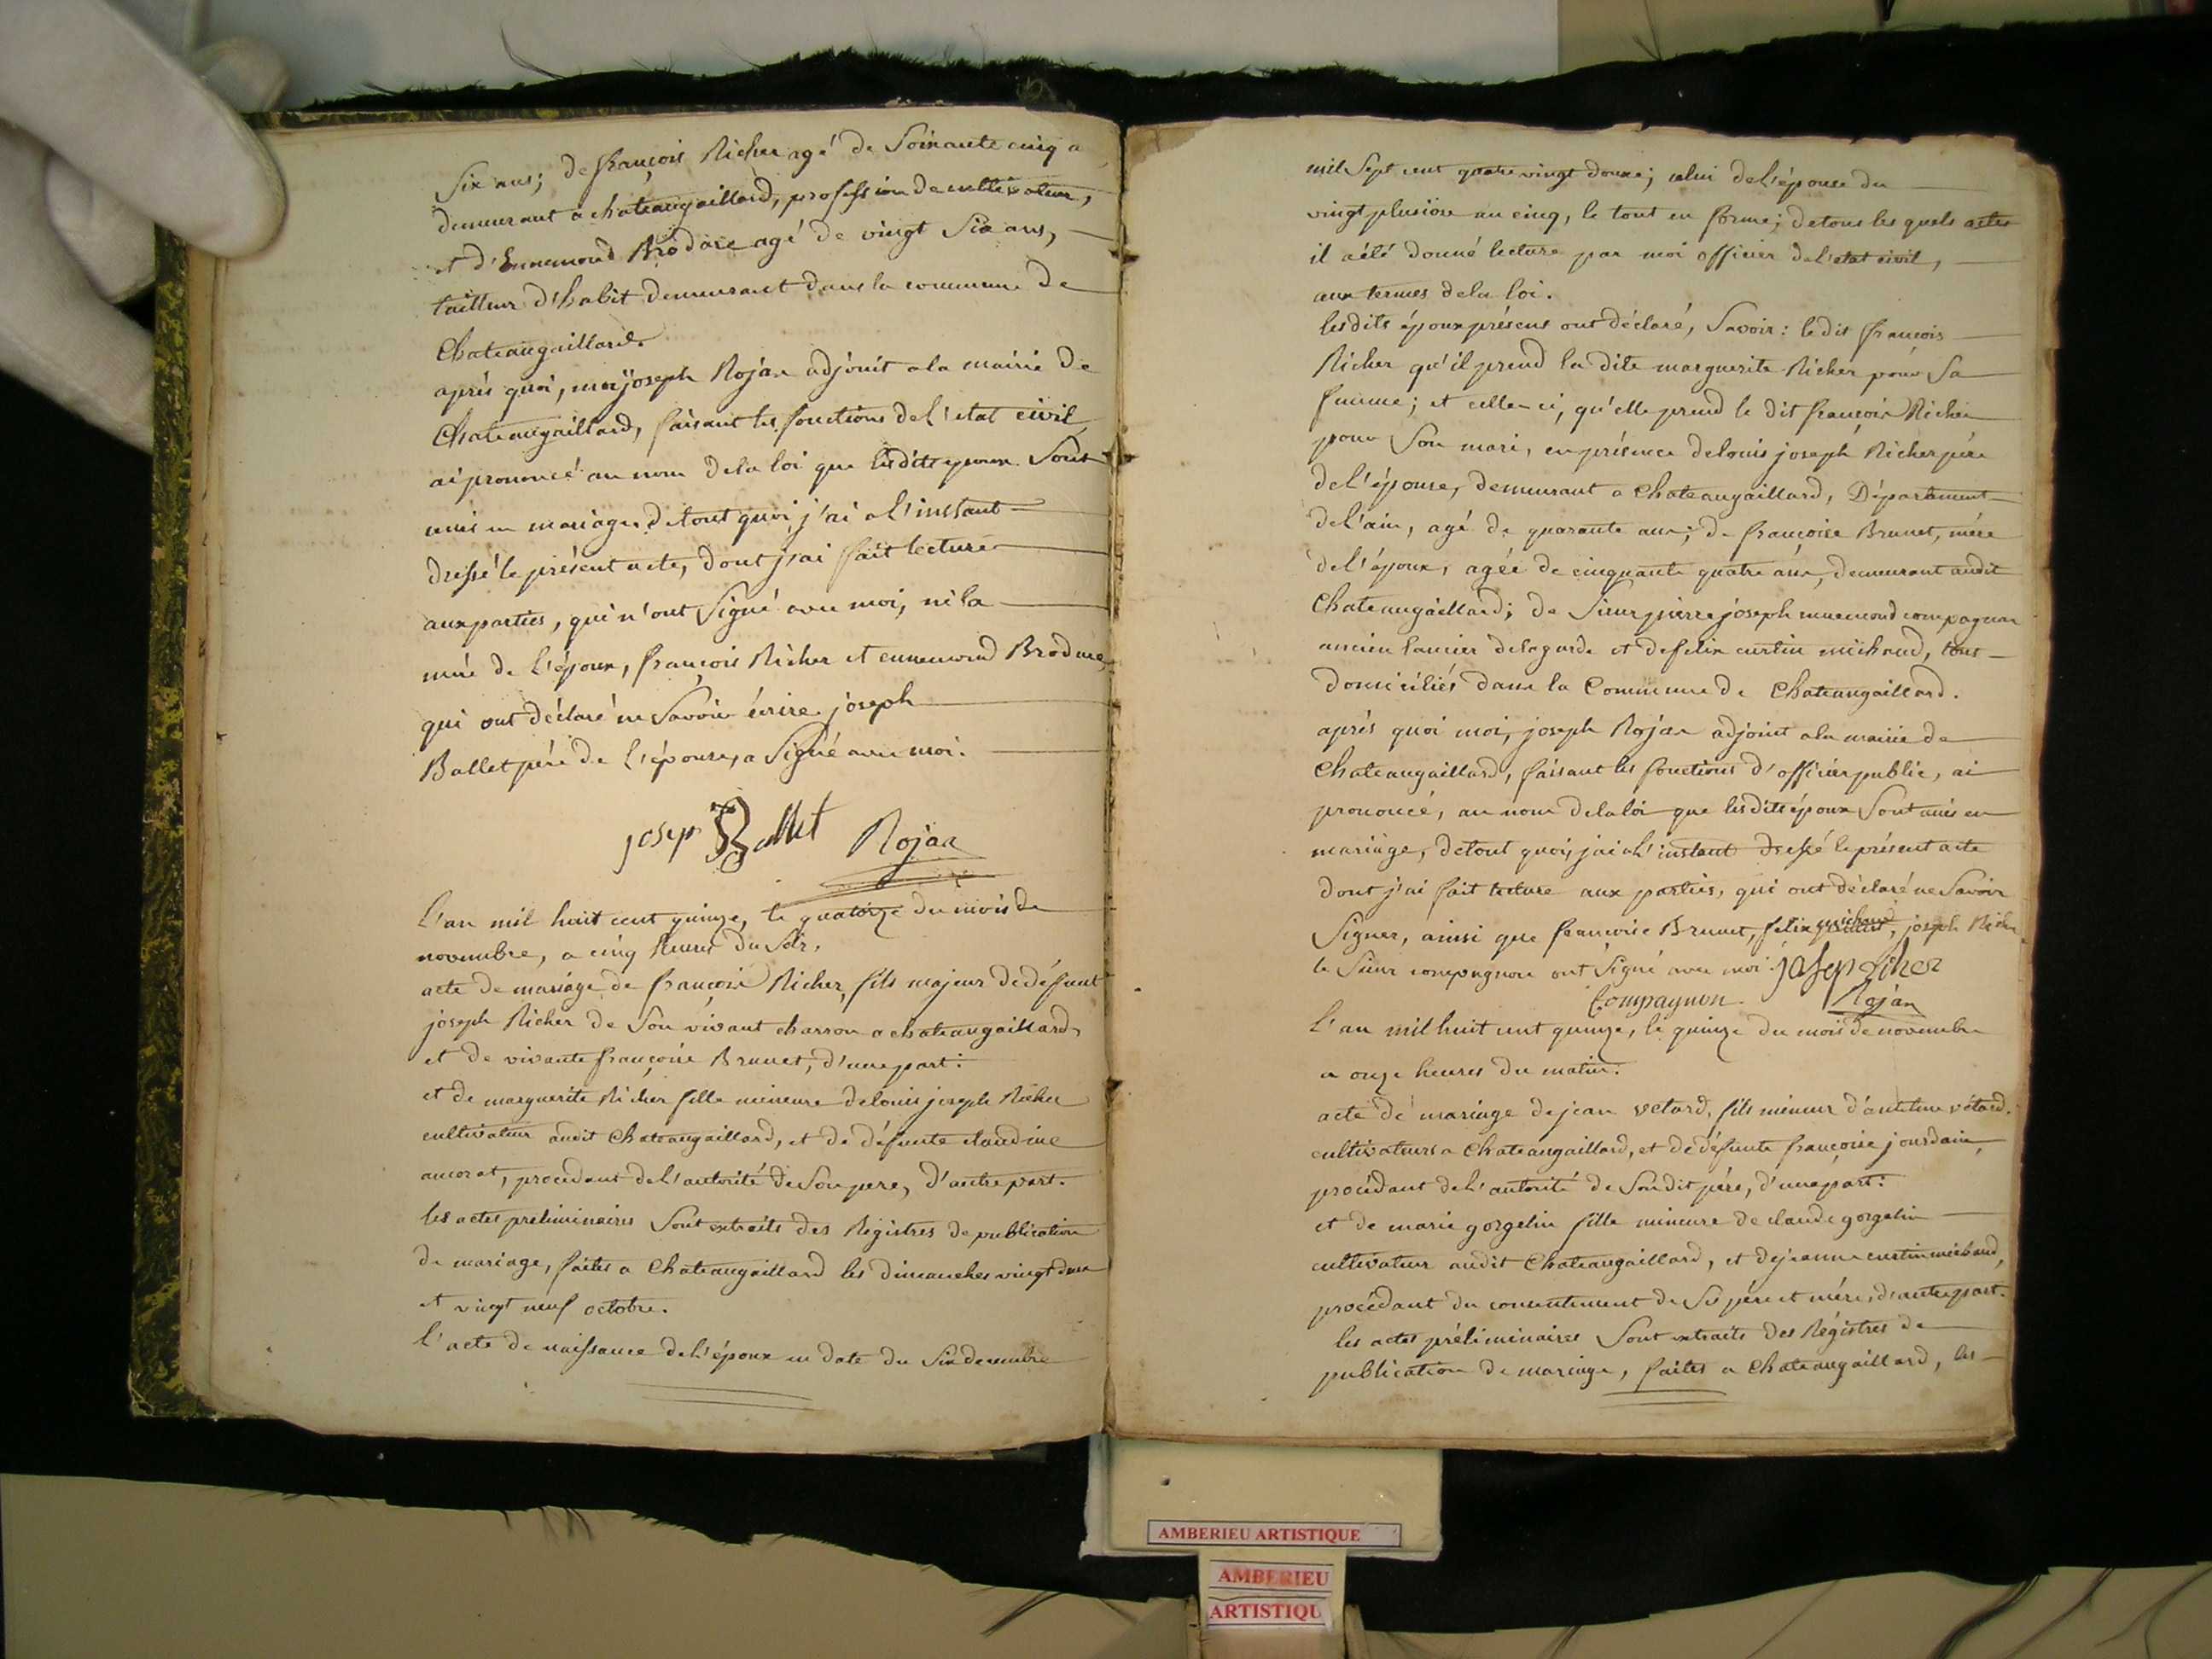 Six ans; de françois Richer agé de Soixante cinq a
demeurant a chateaugaillard, profession de cultivateur,
et d'Ennemond Brodare agé de vingt Six ans,
tailleur d'habit demeurant dans la commune de
Chateaugaillard.
aprés quoi, moi joseph Rojan adjoint a la mairie de
Chateaugaillard, faisant les fonctions de l'etat civil
ai prononcé au nom de la loi que lesdits epoux Sont
unis en mariage, de tout quoi j'ai a l'instant
dressé le présent acte, dont j'ai fait lecture
aux parties, qui n'ont Signé avec moi, ni la
mére de l'époux, françois Richer et ennemond Brodare
qui ont déclaré ne Savoir écrire. joseph
Ballet pére de l'épouse, a Signé avec moi.
josep Ballet Rojan
L'an mil huit cent quinze, le quatorze du mois de
novembre, a cinq heures du Soir.
acte de mariage de françois Richer, fils majeur de défunt
joseph Richer de Son vivant charron a chateaugaillard,
et de vivante françoise Brunet, d'une part:
et de marguerite Richer fille mineure de louis joseph Richer
cultivateur audit Chateaugaillard, et de défunte claudine
amorat, procédant de l'autorité de Son pere, d'autre part.
les actes préliminaires Sont extraits des Régistres de publication
de mariage, faites a Chateaugaillard les dimanches vingt deux
et vingt neuf octobre.
l'acte de naissance de l'époux en date du Six decembre
mil Sept cent quatre vingt douze; celui de l'épouse du
vingt pluviose an cinq, le tout en forme; de tous les quels actes
il a été donné lecture par moi officier de l'etat civil,
aux termes de la loi.
lesdits époux présens ont déclaré, Savoir: ledit françois
Richer qu'il prend la dite marguerite Richer pour Sa
femme; et celle-ci, qu'elle prend le dit françois Richer
pour Son mari, en présence de louis joseph Richer pére
de l'épouse, demeurant a Chateaugaillard, Département
de l'ain, agé de quarante ans; de françoise Brunet, mére
de l'époux, agée de cinquante quatre ans, demeurant audit
Chateaugaillard; de Sieur pierre joseph compagnon
ancien lancier de la garde et de felix curtin michaud, tous
domiciliés dans la Commune de Chateaugaillard.
aprés quoi moi, joseph Rojan adjoint a la mairie de
Chateaugaillard, faisant les fonctions d'officier public, ai
prononcé, au nom de la loi que lesdits époux Sont unis en
mariage, de tout quoi, j'ai a l'instant dressé le présent acte
dont j'ai fait lecture aux parties, qui ont déclaré ne Savoir
Signer, ainsi que françoise Brunet, felix michaud, joseph Richer
le Sieur compagnon ont Signé avec moi. josep Richer
Compagnon. Rojan
L'an mil huit cent quinze, le quinze du mois de novembre
a onze heures du matin.
acte de mariage de jean vetard, fils mineur d'antelme vétard,
cultivateur a Chateaugaillard, et de défunte françoise jourdain,
procédant de l'autorité de Son dit pére, d'une part:
et de marie gorgelin fille mineure de claude gorgelin
cultivateur audit Chateaugaillard, et de jeanne curtin michaud,
procédant du consentement de Ses pére et mére, d'autre part.
les actes préliminaires Sont extraits des Régistres de
publication de mariage, faites a Chateaugaillard, les
AMBERIEU ARTISTIQUE
AMBERIEU
ARTISTIQU